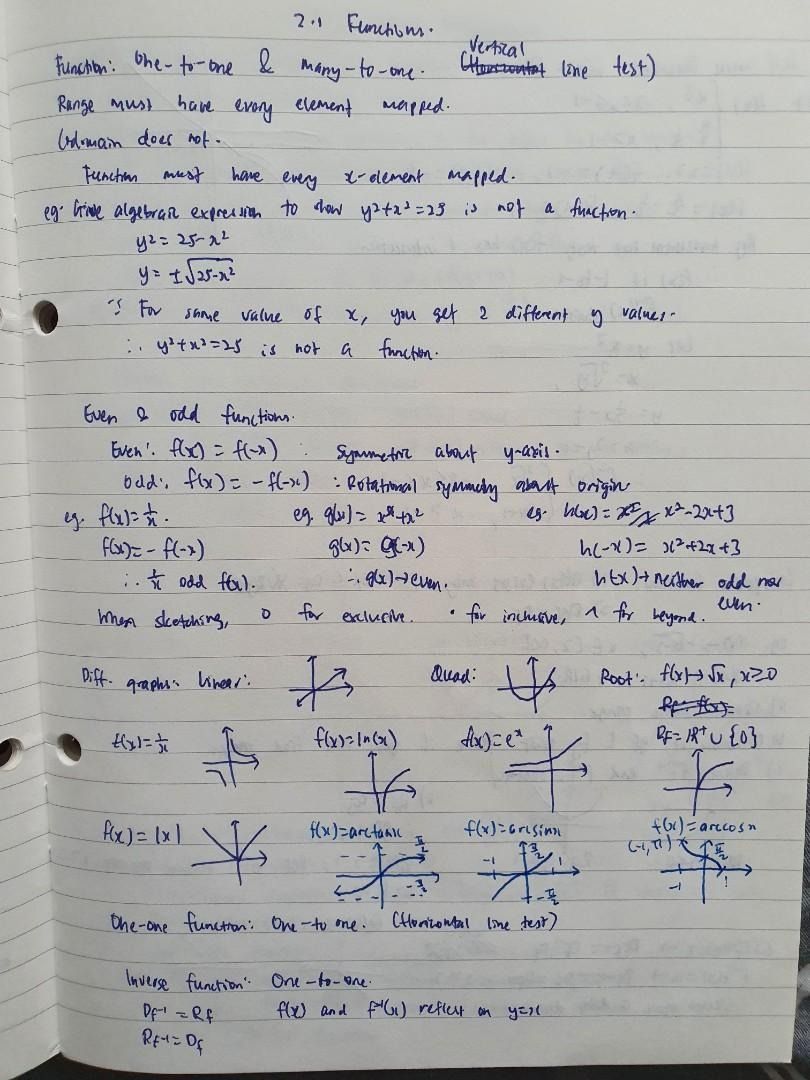 2.1 Functions.
Function: One-to-one & many-to-one. (Vertical line test)
Range must have every element mapped.
Codomain does not.
Function must have every x-element mapped.
eg. Give algebraic expression to show y²+x²=25 is not a function.
y²= 25-x²
y= ±√25-x²
∵ For same value of x, you get 2 different y values.
∴ y²+x²=25 is not a function.
Even & odd functions.
Even: f(x) = f(-x) : Symmetric about y-axis.
Odd: f(x) = -f(-x) : Rotational symmetry about origin
eg. f(x)= 1/x. eg. g(x) = x⁴+x² eg. h(x) = x²-2x+3
f(x)= - f(-x) g(x)= g(-x) h(-x) = x²+2x+3
∴ 1/x odd f(x). ∴ g(x)→even. h(x)→neither odd nor even.
When sketching, o for exclusive. • for inclusive, ^ for beyond.
Diff. graphs: Linear: Quad: Root: f(x)→√x, x≥0
f(x)= 1/x f(x)=ln(x) f(x)=eˣ Rf= ℝ⁺ ∪ {0}
f(x) = |x| f(x)=arctanx f(x)=arcsinx f(x)=arccosx
π/2 -π/2 -1 π/2 1 -π/2 (-1, π) π/2 -1 1
One-one function: One-to one. (Horizontal line test)
Inverse function: One-to-one.
Df⁻¹ = Rf f(x) and f⁻¹(x) reflect on y=x
Rf⁻¹= Df